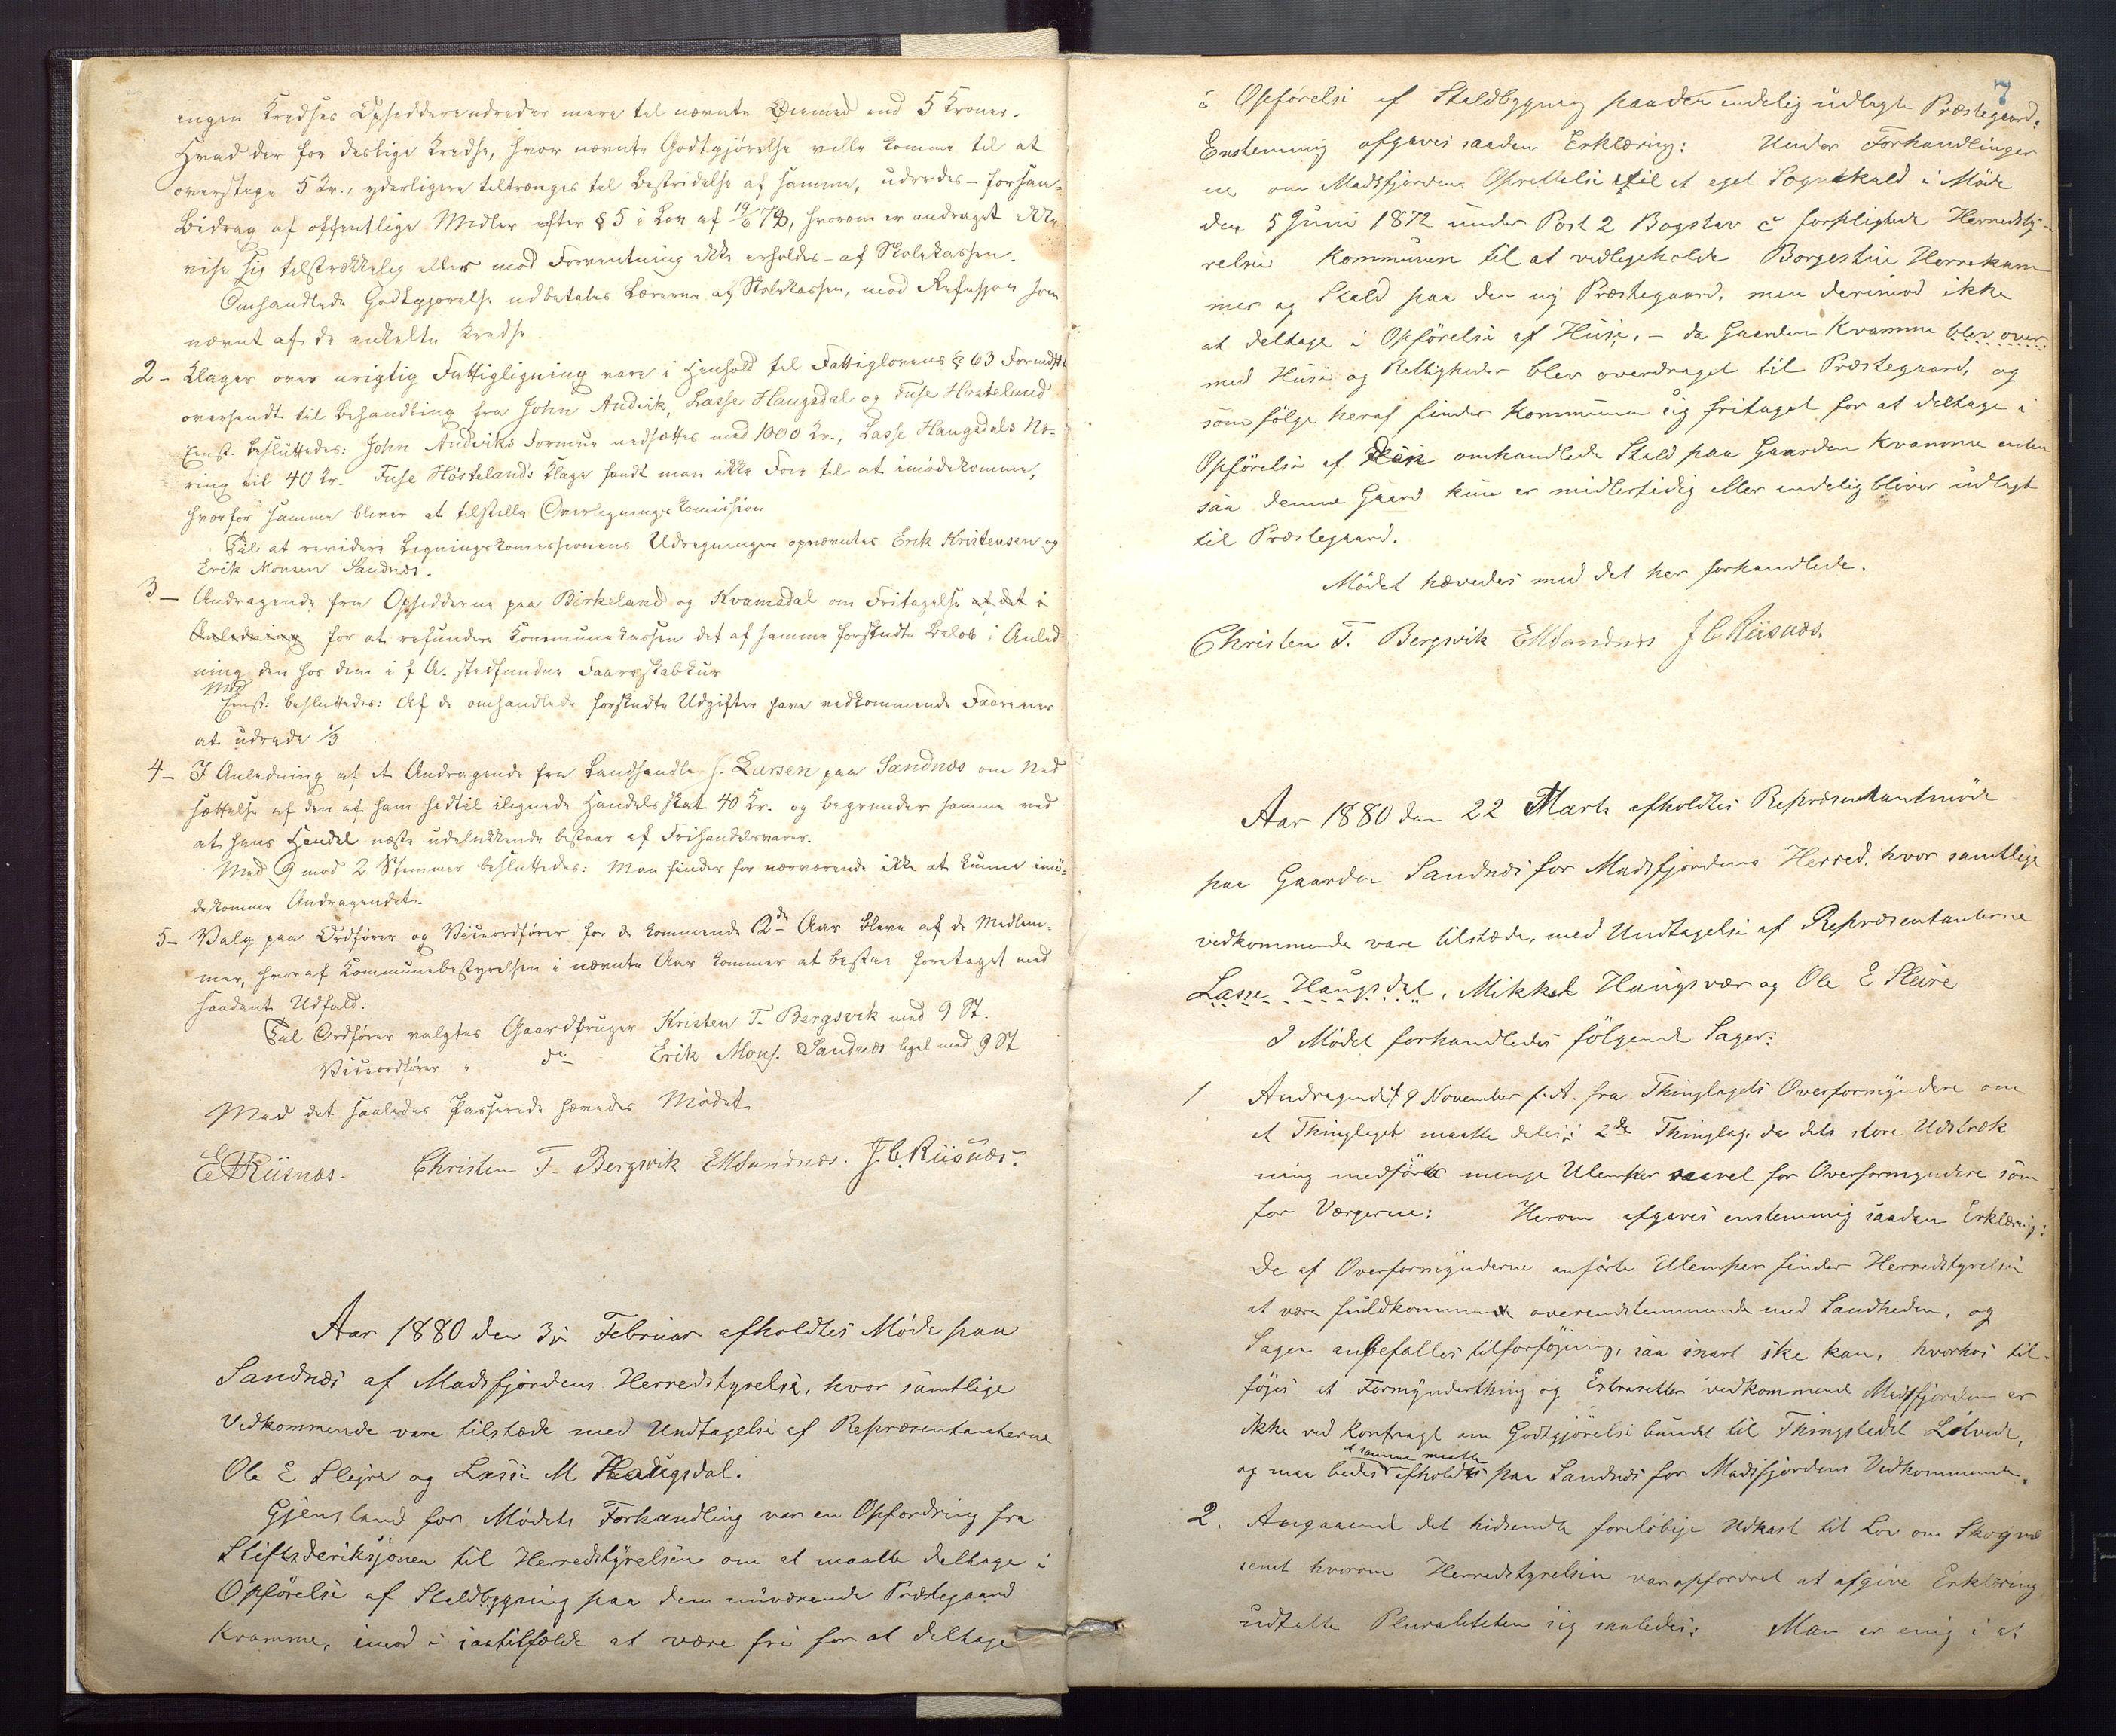 ingen Kredses Opsiddere udreder mere til nævnte Øiemed end 5 Kroner.
Hvad der for deslige Kredse, hvor nævnte Godtgjørelse ville komme til at
overstige 5 Kr., yderligere tiltrænges til Bestridelse af samme, udredes – forsaa-
Bidrag af offentlige Midler efter § 5 i Lov af 19/6 78, hvorom er andraget ikke
vise sig tilstrækkelig eller mod Forventning ikke erholdes – af Skolekassen.
Omhandlede Godtgjørelse udbetales Lærerne af Skolekassen, mod Refusjon som
nævnt af de enkelte Kredse.
2 – Klager over urigtig Fattigligning vare i Henhold til Fattiglovens § 63 Formdsk.
oversendt til Behandling fra John Andvik, Lasse Haugsdal og Fuse Hosteland
Enst. besluttedes: John Andviks Formue nedsættes med 1000 Kr., Lasse Haugsdals Næ-
ring til 40 Kr. Fuse Høstelands Klage fandt man ikke Føie til at imødekomme,
hvorfor samme bliver at tilstille Overligningskomission
Til at revidere Ligningskomissionens Udregninger opnævntes Erik Kristensen og
Erik Monsen Sandnæs.
3 – Andragende fra Opsidderne paa Birkeland og Kvamsdal om Fritagelse af det i
Anledning for at refundere Kommunekassen det af samme forskudte Beløb i Anled
ning den hos dem i f A. stedfundne Faareskabkur
Med
Enst: besluttedes: Af de omhandlede forskudte Udgifter have vedkommende Faareeier
at udrede 1/3
4 – I Anledning af et Andragende fra Landhandler J. Larsen paa Sandnæs om Ned
sættelse af den af ham hidtil ilignede Handelsskat 40 Kr. og begrunder samme ved
at hans Handel næste udelukkende bestaar af Frihandelsvarer.
Med 9 mod 2 Stemmer besluttedes: Man finder for nærværende ikke at kunne imø-
dekomme Andragendet.
5 – Valg paa Ordfører og Viceordfører for de kommende 2de Aar bleve af de Medlem-
mer, hvoraf Kommunebestyrelsen i nævnte Aar kommer at bestaa foretaget med
saadant Udfald:
Til Ordfører valgtes Gaardbruger Kristen T. Bergsvik med 9 St.
Viceordfører " do Erik Mons. Sandnæs ligel med 9 St
Med det saaledes Passerede hævedes Mødet
E Riisnæs. Christen T. Bergsvik EMSandnæs. J. C. Riisnæs.
Aar 1880 den 3je Februar afholdtes Møde paa
Sandnæs af Masfjordens Herredstyrelse, hvor samtlige
Vedkommende vare tilstæde med Undtagelse af Repræsentanterne
Ole E Sleire og Lasse M Haugsdal.
Gjenstand for Mødets Forhandling var en Opfordring fra
Stiftsderiksjonen til Herredstyrelsen om at maatte deltage i
Opførelse af Staldbygning paa den nuværende Præstegaard
Kvamme, imod i saatilfælde at være fri for at deltage
7
i Opførelse af Staldbygning paa den endelig udlagte Præstegaard:
Enstemmig afgaves saaden Erklæring: Under Forhandlinger
ne om Masfjordens Oprettelse til et eget Sognekald i Møde
den 5 Juni 1872 under Post 2 Bogstav c forpligtede Herredsty-
relsen Kommunen til at vedligeholde Borgestue Herrekam
mer og Stald paa den ny Præstegaard, men derimod ikke
at deltage i Opførelse af Huse, – da Gaarden Kvamme blev over-
med Huse og Rettigheder blev overdraget til Præstegaard, og
som følge heraf finder Kommunen sig fritaget for at deltage i
Opførelse af den omhandlede Stald paa Gaarden Kvamme enten
saa denne Gaard kun er midlertidig eller endelig bliver udlagt
til Præstegaard.
Mødet hævedes med det her forhandlede.
Christen T. Bergsvik EMSandnæs J C Riisnæs.
Aar 1880 den 22 Marts afholdtes Repræsentantmøde
paa Gaarden Sandnæs for Masfjordens Herred, hvor samtlige
vedkommende vare tilstæde, med Undtagelse af Repræsentanterne
Lasse Haugsdal, Mikkel Haugsvær og Ole E Sleire
I Mødet forhandledes følgende Sager:
1 Andragendet 9 November f. A. fra Thinglagets Overformyndere om
at Thinglaget maatte deles i 2de Thinglag, da dets store Udstræk
ning medførte mange Ulemper saavel for Overformyndere som
for Værgerne: Herom afgaves enstemmig saaden Erklæring:
De af Overformynderne anførte Ulemper finder Herredstyrelsen
at være fuldkommen overensstemmende med Sandheden, og
Sagen anbefalles tilforføjning, saa snart ske kan, hvorhos til-
føjes at Formynderthing og Extraretter vedkommende Masfjorden er
ikke ved Kontragt om Godtgjørelse bundet til Thingstedet Lølvede,
at samme maatte
og man bedes afholdes paa Sandnæs for Masfjordens Vedkommende.
2. Angaaende det hidsendte foreløbige Udkast til Lov om Skogvæ
senet hvorom Herredstyrelsen var opfordret at afgive Erklæring
udtalte Pluraliteten sig saaledes: Man er enig i at